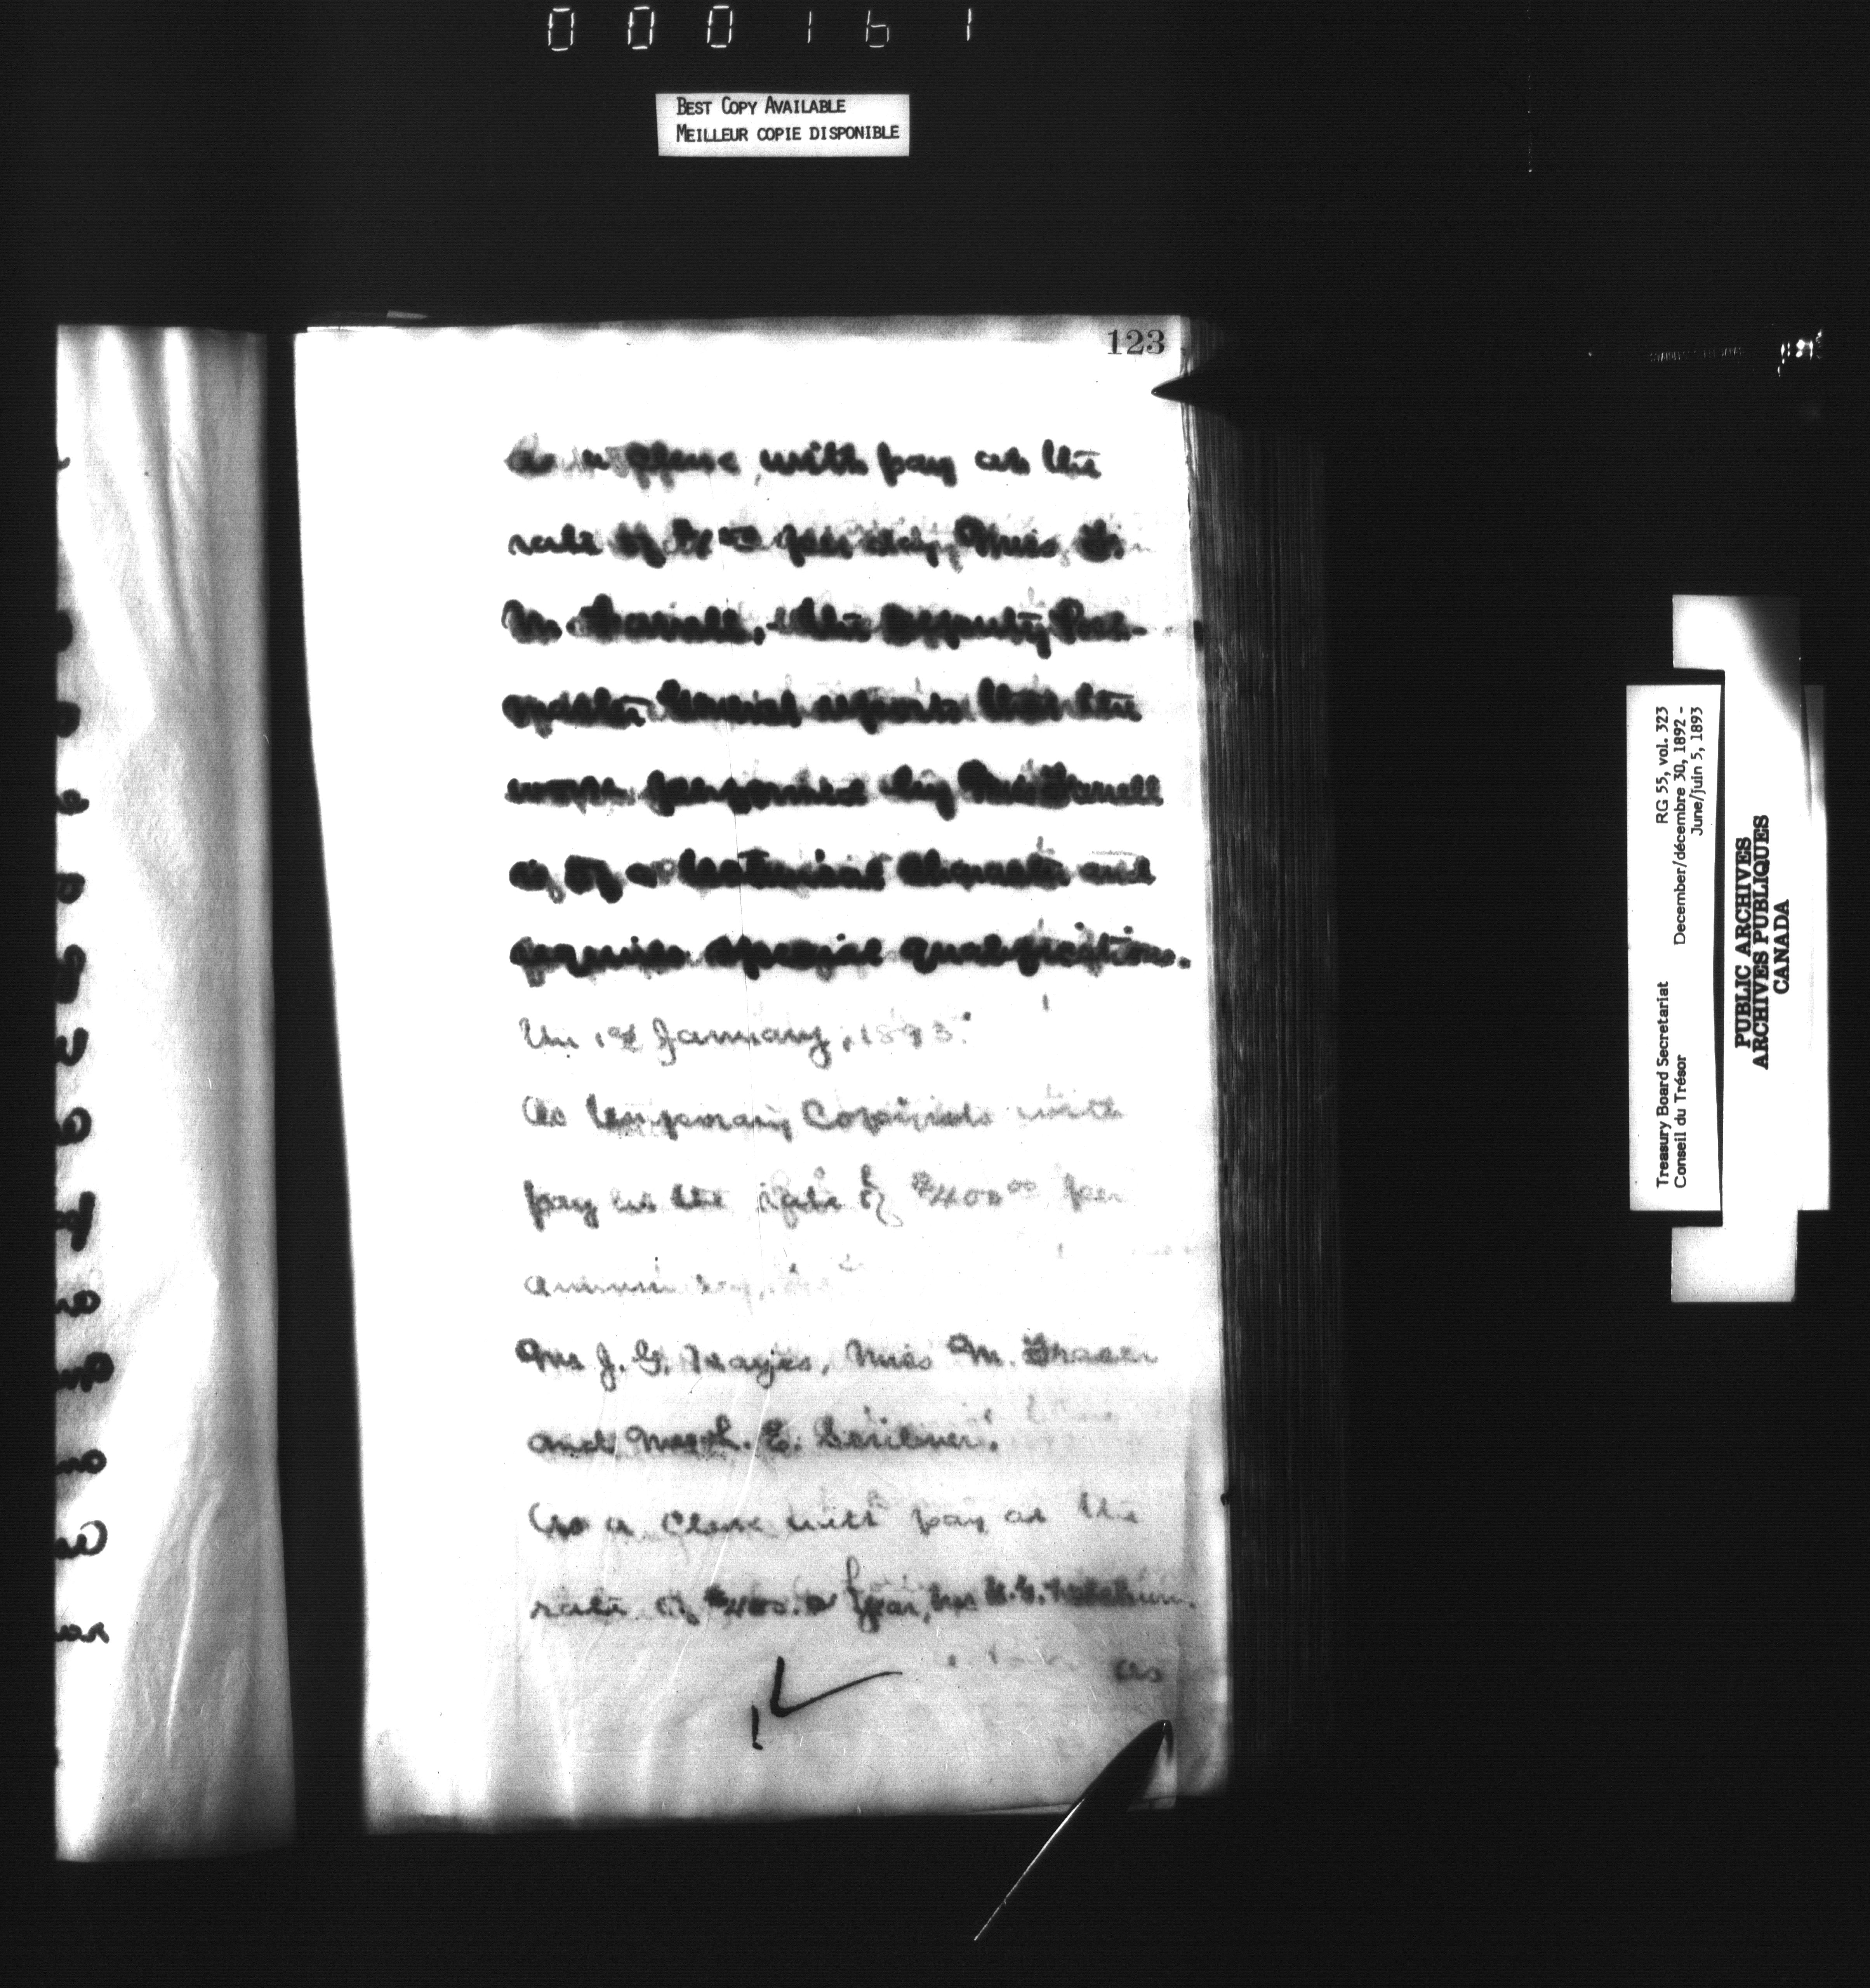 000161
BEST COPY AVAILABLE
MEILLEUR COPIE DISPONIBLE
123
as a clerk, with pay at the
rate of per day, Miss F.
M. Farrell, the Deputy Post-
master General reports that the
work performed by Miss Farrell
is of a technical character and
requires special qualifications.
On 1st January, 1893.
As temporary Copyists with
pay at the rate of $400.00 per
annum
J. G. Miss M. Fraser
and E. Scribner.
As a Clerk with pay at the
rate of $400.00 year,
as
Treasury Board Secretariat RG 55, vol. 323
Conseil du Trésor December/décembre 30, 1892 -
June/juin 5, 1893
PUBLIC ARCHIVES
ARCHIVES PUBLIQUES
CANADA